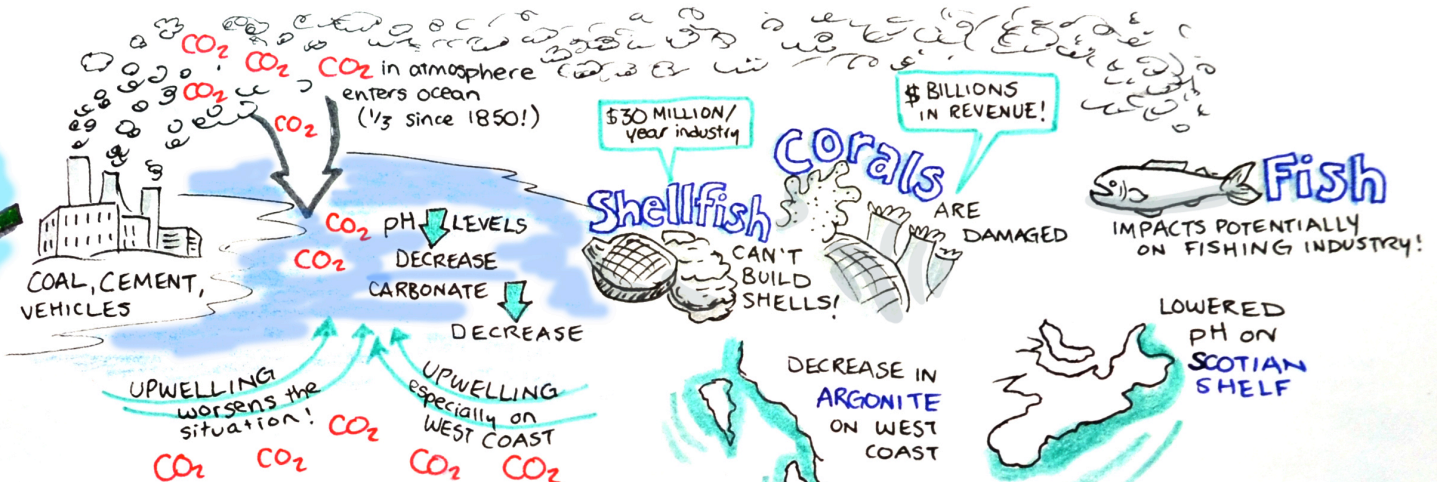 CO2
CO2
CO2 in atmosphere
enters ocean
(1/3 since 1850!)
CO2
CO2
COAL, CEMENT,
VEHICLES
CO2
CO2
pH LEVELS
DECREASE
CARBONATE
DECREASE
UPWELLING
worsens the
situation!
UPWELLING
especially on
WEST COAST
CO2
CO2
CO2
CO2
CO2
$30 MILLION/
year industry
Shellfish
CAN'T
BUILD
SHELLS!
$ BILLIONS
IN REVENUE!
Corals
ARE
DAMAGED
Fish
IMPACTS POTENTIALLY
ON FISHING INDUSTRY!
DECREASE IN
ARGONITE
ON WEST
COAST
LOWERED
pH ON
SCOTIAN
SHELF